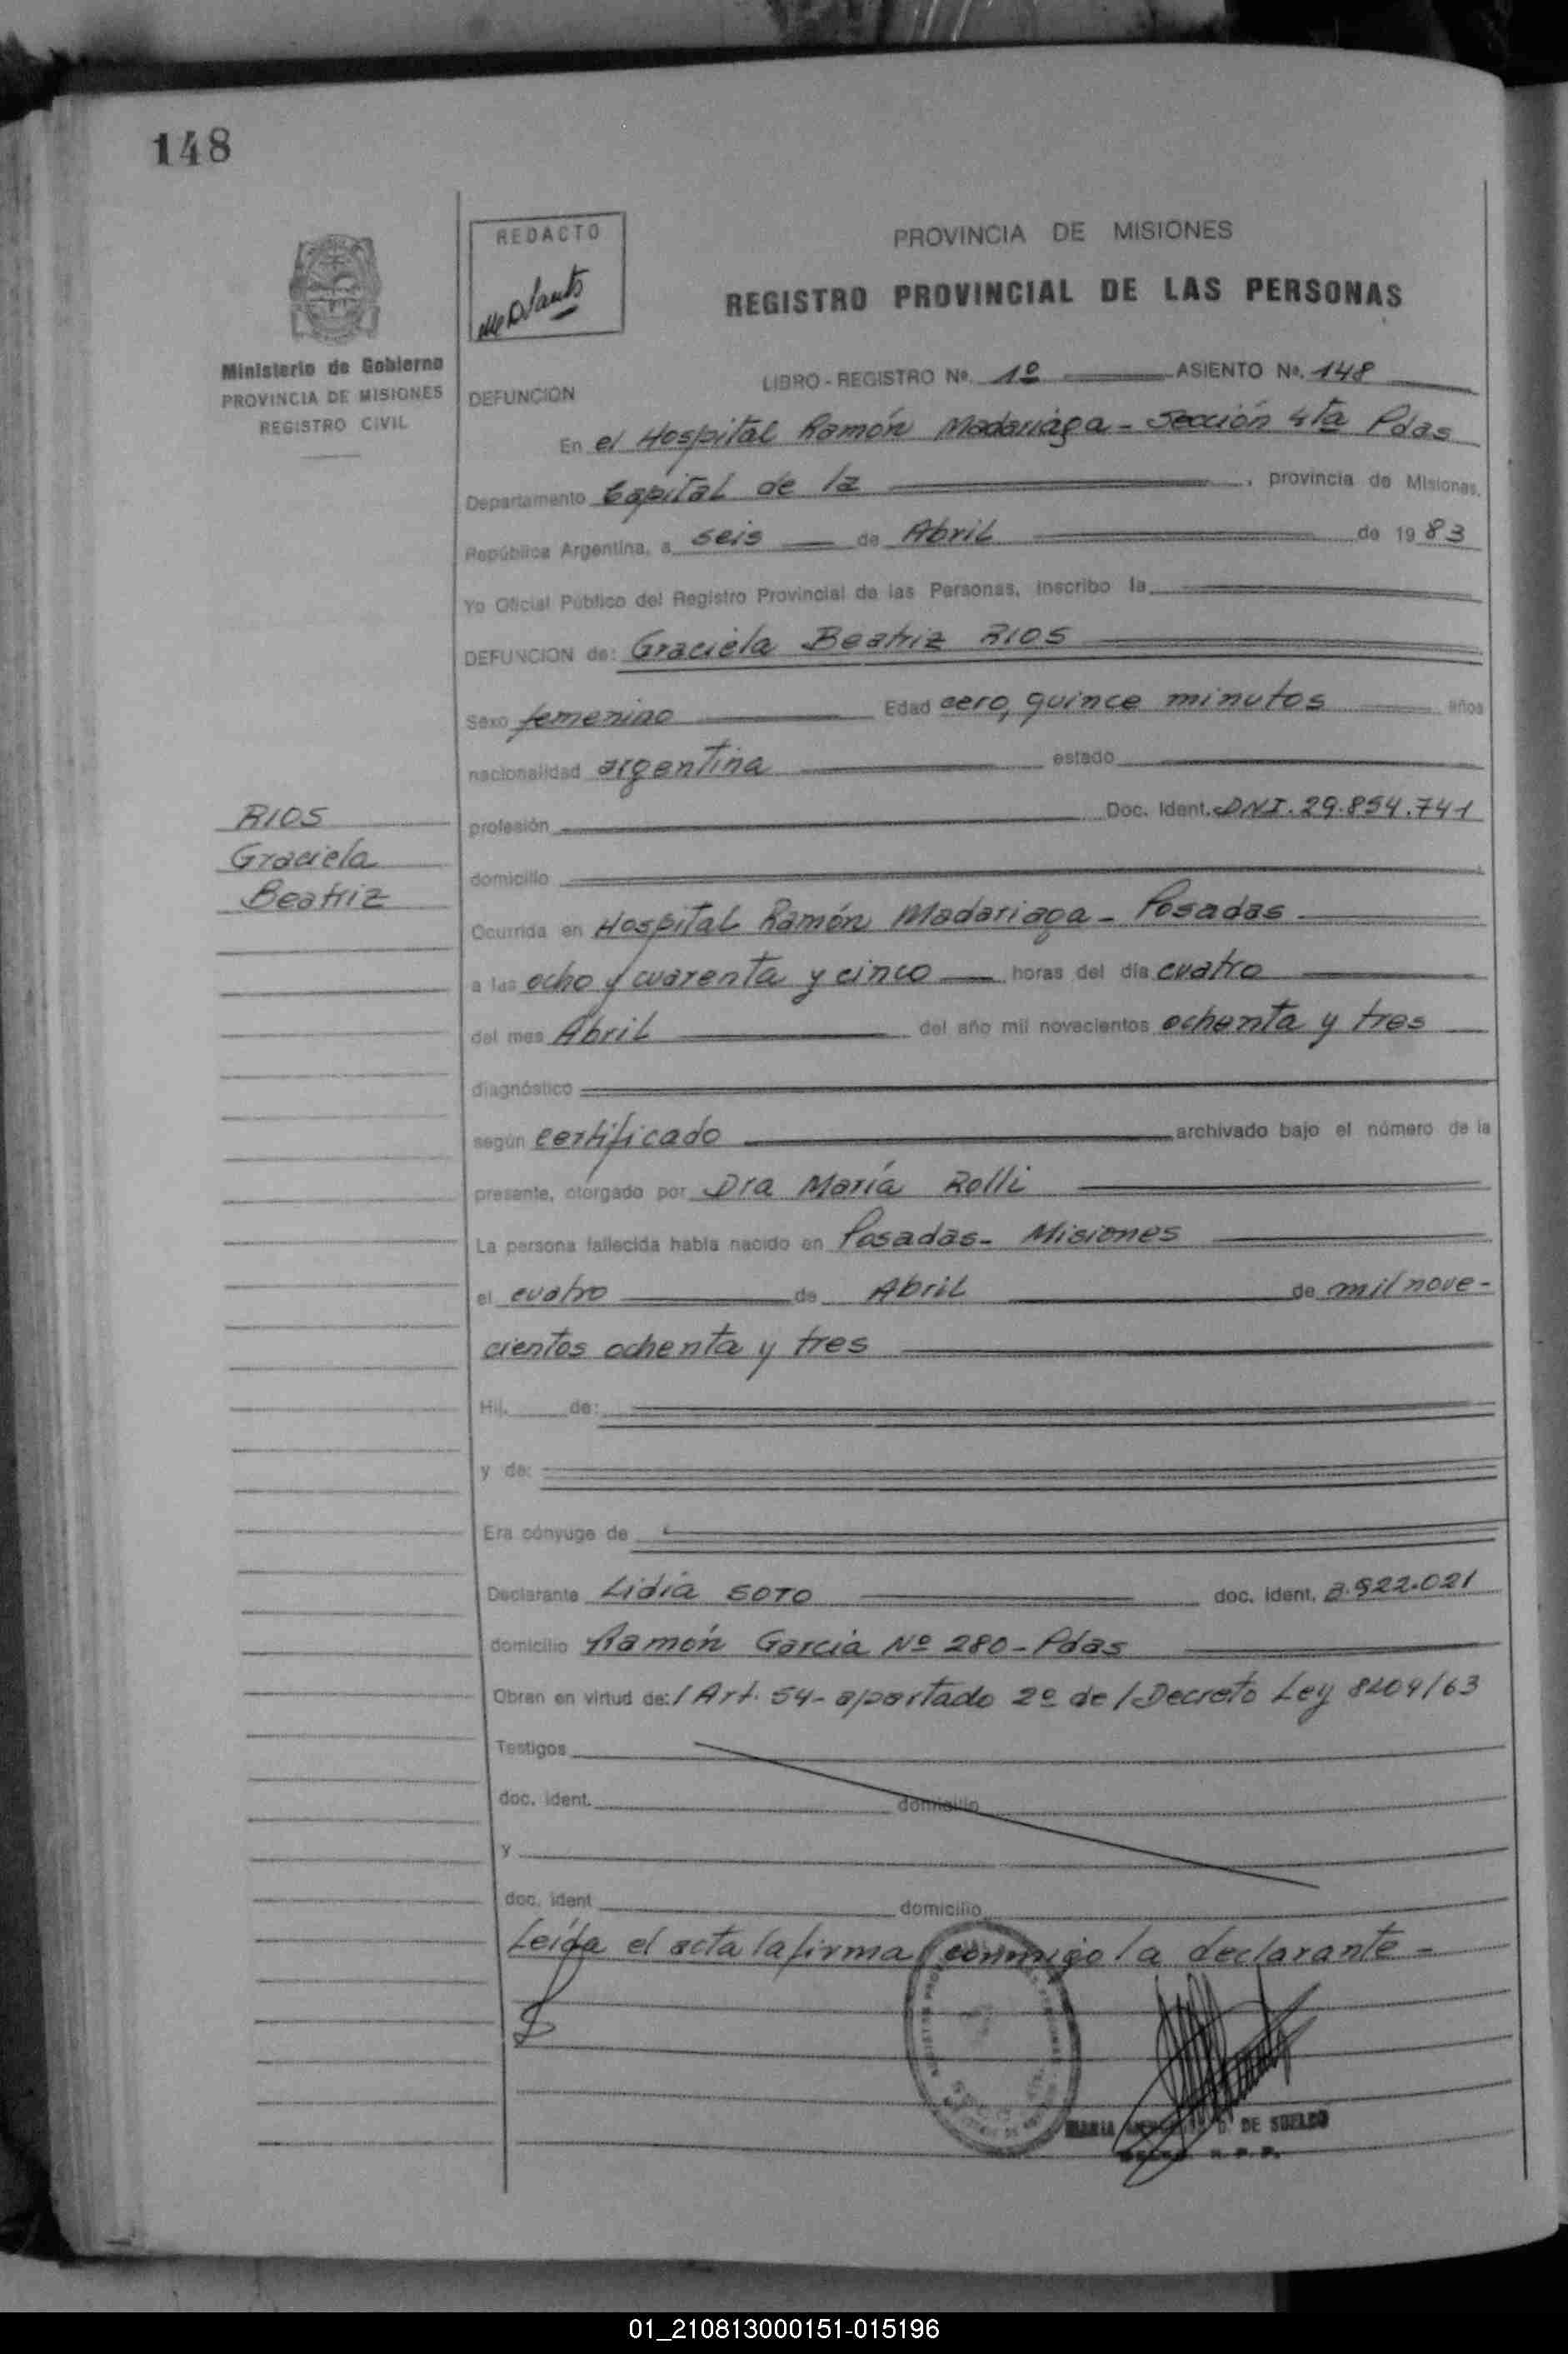 148
REDACTO
PROVINCIA DE MISIONES
REGISTRO PROVINCIAL DE LAS PERSONAS
Ministerio de Gobierno
PROVINCIA DE MISIONES
REGISTRO CIVIL
LIBRO - REGISTRO Nº. 1º ASIENTO Nº. 148
DEFUNCION
En el Hospital Ramón Madariaga - Sección 4ta Pdas
Departamento Capital de la , provincia de Misiones,
República Argentina, a seis de Abril de 1983
Yo Oficial Público del Registro Provincial de las Personas, inscribo la
DEFUNCION de: Graciela Beatriz RIOS
Sexo femenino Edad cero, quince minutos años
nacionalidad argentina estado
RIOS
Graciela
Beatriz
profesión Doc. Ident. DNI. 29.854.741
domicilio
Ocurrida en Hospital Ramón Madariaga - Posadas
a las ocho y cuarenta y cinco horas del día cuatro
del mes Abril del año mil novecientos ochenta y tres
diagnóstico
según certificado archivado bajo el número de la
presente, otorgado por Dra María Rolli
La persona fallecida había nacido en Posadas - Misiones
el cuatro de Abril de mil nove-
cientos ochenta y tres
Hij. de:
y de:
Era cónyuge de
Declarante Lidia SOTO doc. ident.
domicilio Ramón Garcia Nº 280 - Pdas
Obran en virtud de: l Art. 54 - apartado 2º del Decreto Ley 8204/63
Testigos
doc. ident. domicilio
y
doc. ident domicilio
Leída el acta la firma conmigo la declarante =
MARIA D. DE SUELDO
R. P. P.
01_210813000151-015196